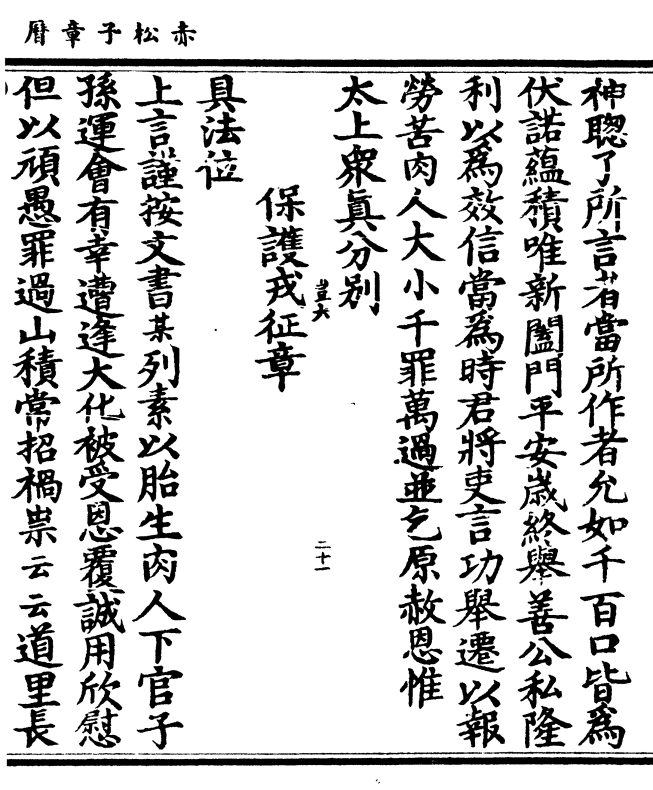 赤松子章曆
神聰了所言者當所作者允如千百口皆爲
伏諾蘊積唯新闔門平安歲終舉善公私隆
利以爲效信當爲時君將吏言功舉遷以報
勞苦肉人大小千罪萬過並乞原赦恩惟
太上衆真分别
豈六
二十一
保護戎征章
具法位
上言謹按文書某列素以胎生肉人下官子
孫運會有幸遭逢大化被受恩覆誠用欣慰
但以頑愚罪過山積常招禍祟云云道里長